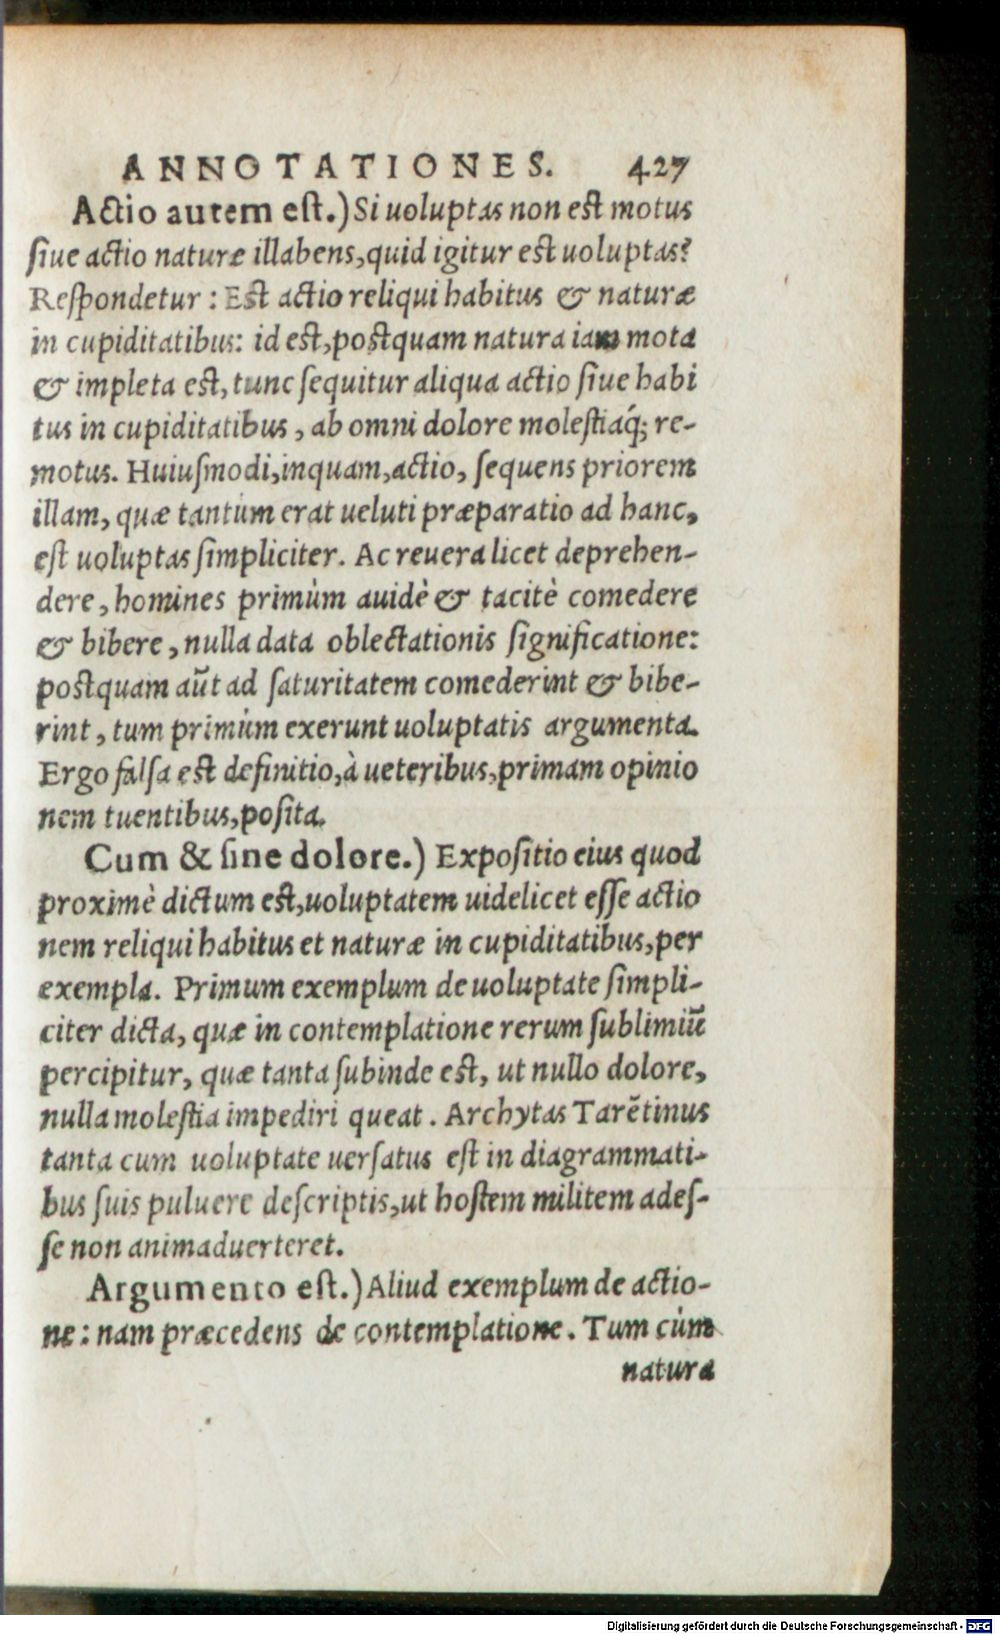 ANNOTATIONES. 427
Actio autem est.) Si uoluptas non est motus
siue actio naturæ illabens, quid igitur est uoluptas?
Respondetur: Est actio reliqui habitus & naturæ
in cupiditatibus: id est, postquam natura iam mota
& impleta est, tunc sequitur aliqua actio siue habi
tus in cupiditatibus, ab omni dolore molestiáq; re-
motus. Huiusmodi, inquam, actio, sequens priorem
illam, quæ tantùm erat ueluti præparatio ad hanc,
est uoluptas simpliciter. Ac reuera licet deprehen-
dere, homines primùm auidè & tacitè comedere
& bibere, nulla data oblectationis significatione:
postquam aũt ad saturitatem comederint & bibe-
rint, tum primùm exerunt uoluptatis argumenta.
Ergo falsa est definitio, à ueteribus, primam opinio
nem tuentibus, posita.
Cum & sine dolore.) Expositio eius quod
proximè dictum est, uoluptatem uidelicet esse actio
nem reliqui habitus et naturæ in cupiditatibus, per
exempla. Primum exemplum de uoluptate simpli-
citer dicta, quæ in contemplatione rerum sublimiũ
percipitur, quæ tanta subinde est, ut nullo dolore,
nulla molestia impediri queat. Archytas Tarẽtinus
tanta cum uoluptate uersatus est in diagrammati-
bus suis puluere descriptis, ut hostem militem ades-
se non animaduerteret.
Argumento est.) Aliud exemplum de actio-
ne: nam præcedens de contemplatione. Tum cùm
natura
Digitalisierung gefördert durch die Deutsche Forschungsgemeinschaft - DFG